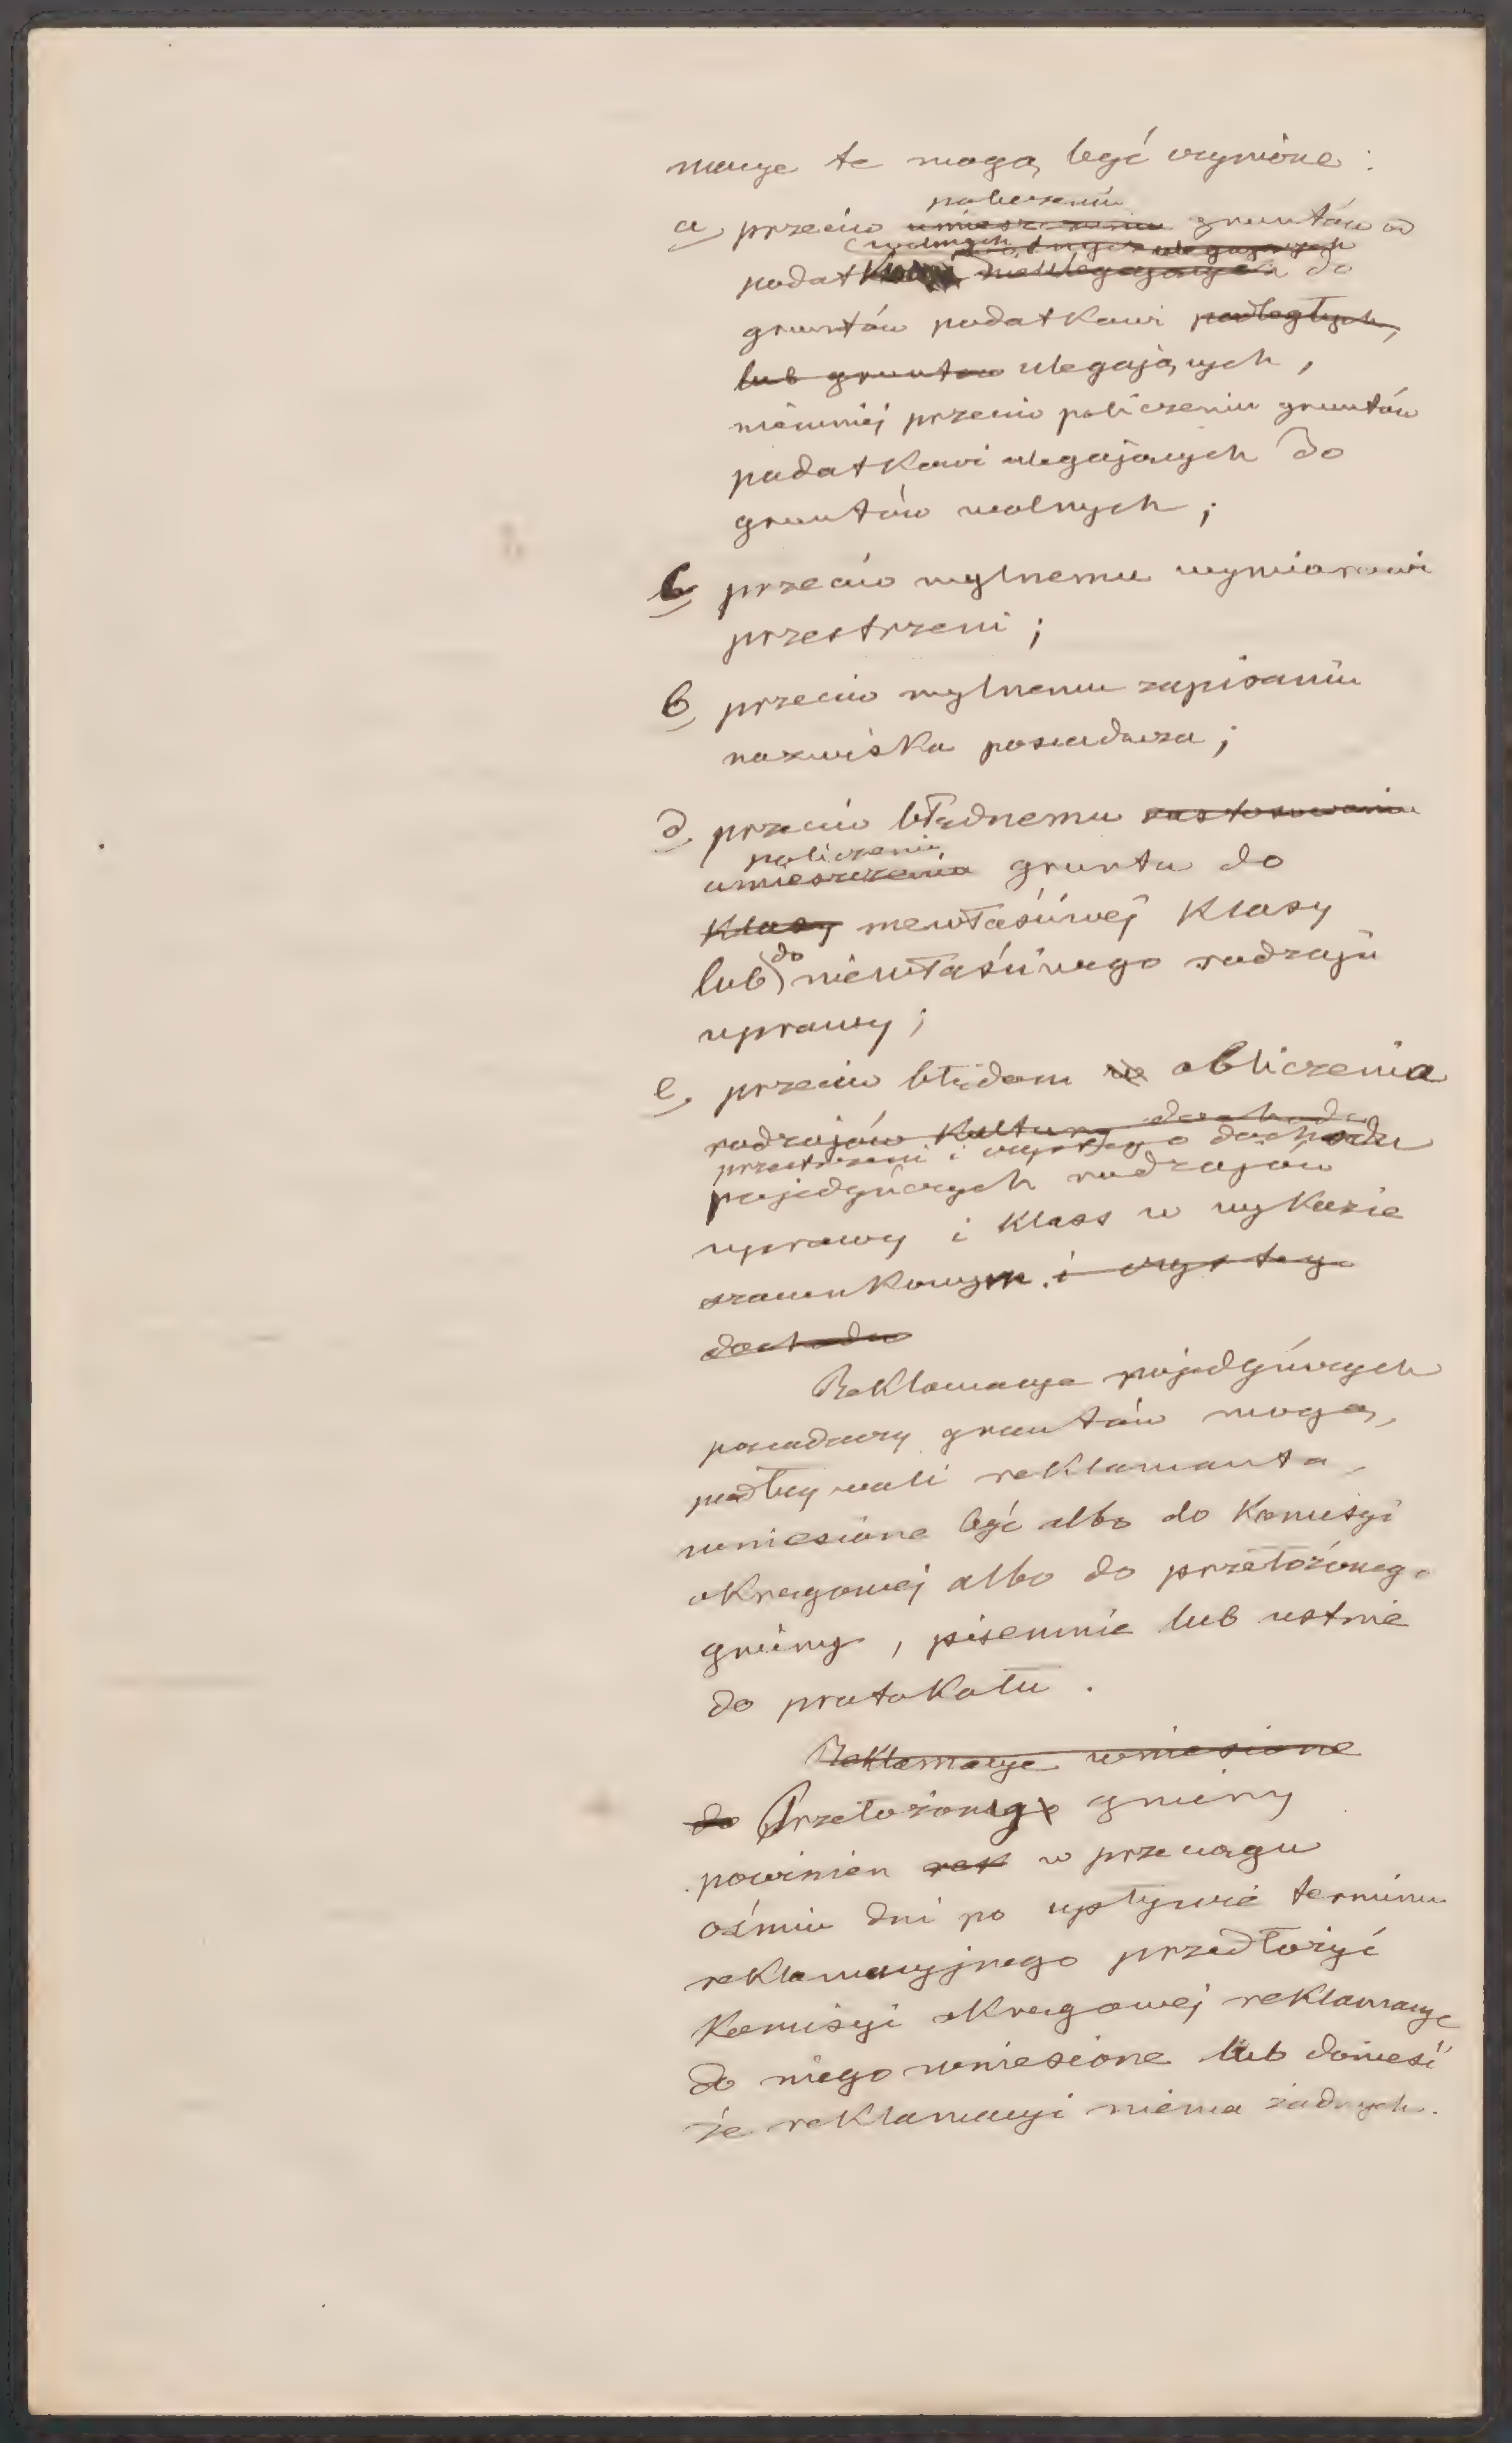 macye te mogą być czynione :
policzeniu
a, przeciw umieszczeniu gruntów od
wolnych
podatku nieulegających do
gruntów podatkowi podległych,
lub gruntów ulegających,
niemniej przeciw policzeniu gruntów
podatkowi ulegających do
gruntów wolnych ;
b, przeciw mylnemu wymiarowi
przestrzeni ;
c, przeciw mylnemu zapisaniu
nazwiska posiadacza ;
d, przeciw błędnemu zastosowaniu
policzeniu
umieszczeniu gruntu do
klasy niewłaściwej klasy
do
lub niewłaściwego rodzaju
uprawy ;
e, przeciw błędom w obliczenia
dochodu
rodzajów kultury
przestrzeni i czystego dochodu
pojedyńczych rodzajów
uprawy i klass w wykazie
szacunkowym i czystego
dochodu
Reklamacye pojedyńczych
posiadaczy gruntów mogą,
podług woli reklamanta,
wniesione być albo do Komisyi
okręgowej albo do przełożonego
gminy, pisemnie lub ustnie
do protokołu .
Reklamacye wniesione
do Przełożony gminy
powinien rek w przeciągu
ośmiu dni po upływie terminu
reklamacyjnego przedłożyć
Komisyi okręgowej reklamacye
do niego wniesione lub donieść
że reklamacyi niema żadnych.